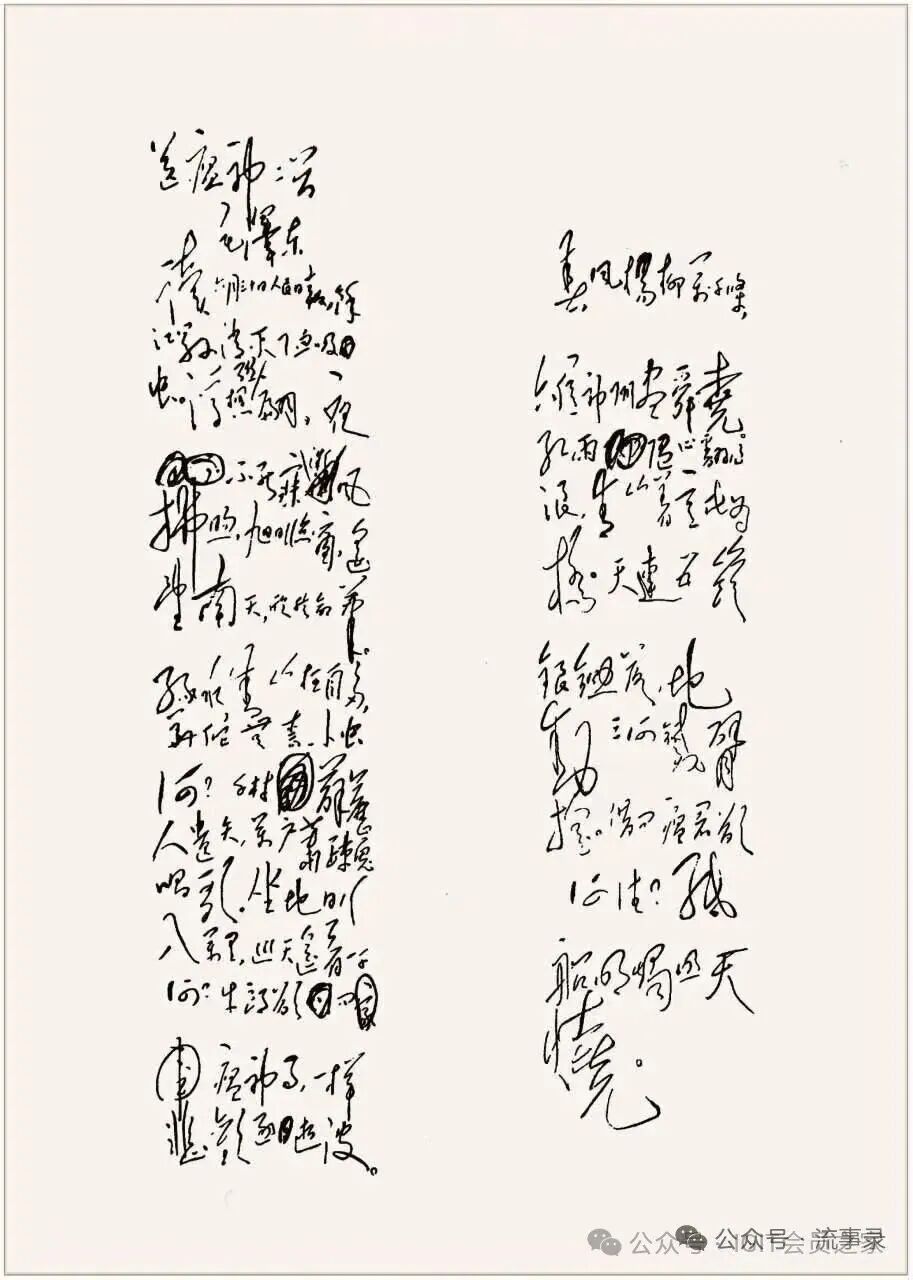 送瘟神二首
毛澤东
讀六月三十日人民日报,余
江縣消灭了血吸
虫。浮想联翩,夜
不能寐。微风
拂煦,旭日临窗,遥
望南天,欣然命笔。
绿水青山枉自多,
华佗無奈小虫
何?千村薜荔
人遗矢,萬户萧疏鬼
唱歌。坐地日行
八萬里,巡天遥看一千
河?牛郎欲问
瘟神事,一样
悲歡逐逝波。
春风楊柳萬千條,
六億神州尽舜堯。
红雨随心翻作
浪,青山着意化为
橋。天連五嶺
银锄落,地
动三河铁臂
摇。借问瘟君欲
何往?纸
船明燭照天
燒。
公众号 · 流事录